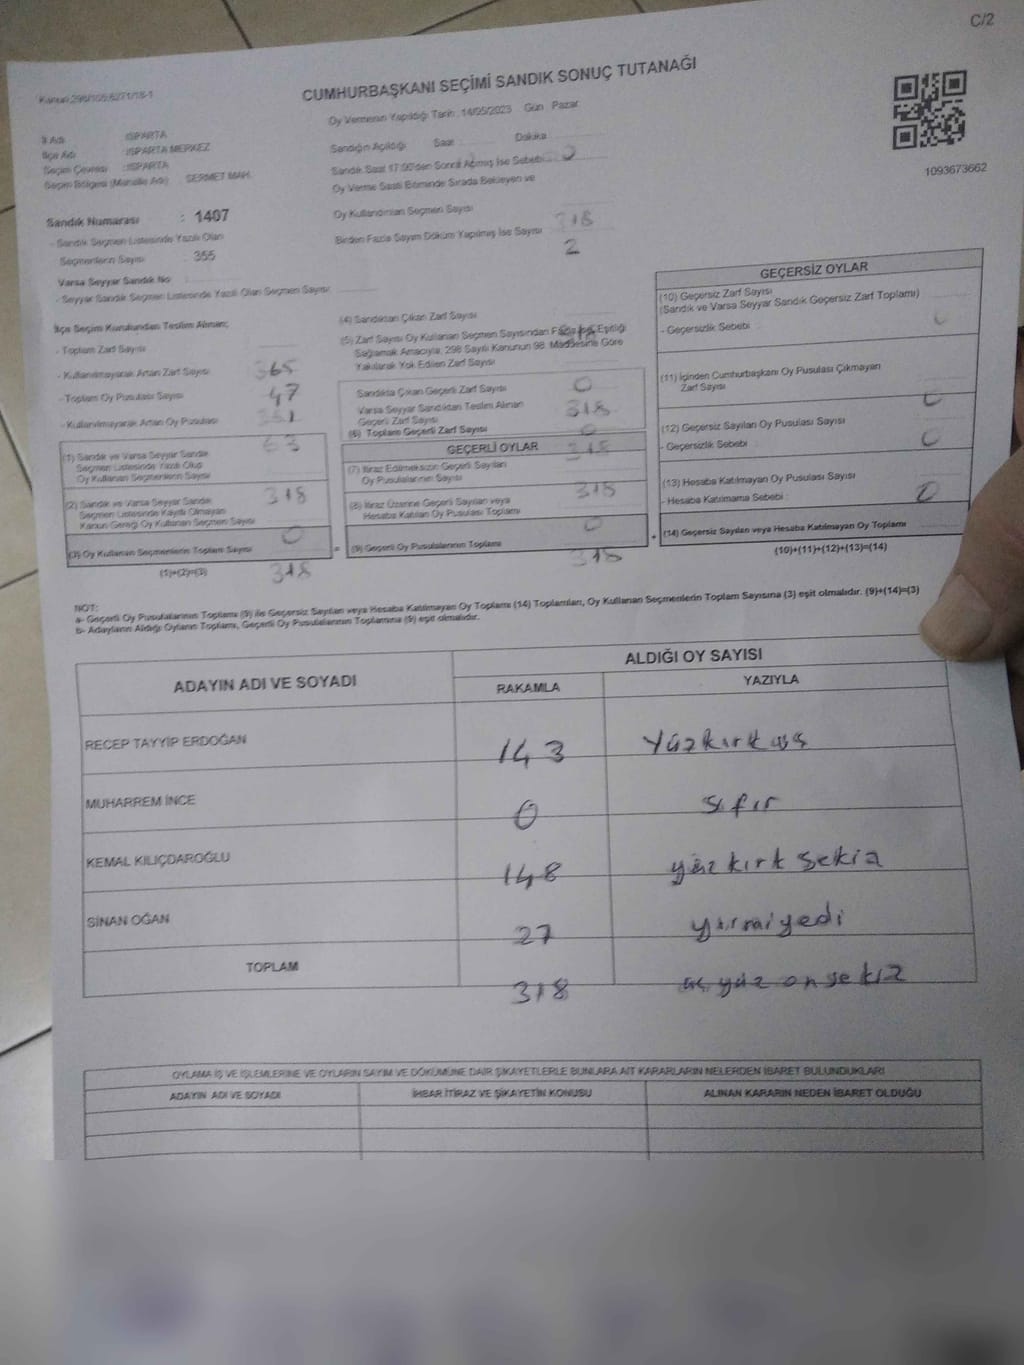 C/2
Kanun:298/105;6271/18-1
CUMHURBAŞKANI SEÇİMİ SANDIK SONUÇ TUTANAĞI
Oy Vermenin Yapıldığı Tarih : 14/05/2023 Gün Pazar
İl Adı : ISPARTA
İlçe Adı : ISPARTA MERKEZ
Seçim Çevresi : ISPARTA
Seçim Bölgesi (Mahalle Adı) SERMET MAH.
Sandığın Açıldığı Saat Dakika
Sandık Saat 17:00'den Sonra Açılmış İse Sebebi
Oy Verme Saati Bitiminde Sırada Bekleyen ve
Oy Kullandırılan Seçmen Sayısı
318
Birden Fazla Sayım Döküm Yapılmış İse Sayısı
2
1093673662
Sandık Numarası : 1407
- Sandık Seçmen Listesinde Yazılı Olan
Seçmenlerin Sayısı : 355
Varsa Seyyar Sandık No
- Seyyar Sandık Seçmen Listesinde Yazılı Olan Seçmen Sayısı
İlçe Seçim Kurulundan Teslim Alınan;
- Toplam Zarf Sayısı
365
- Kullanılmayarak Artan Zarf Sayısı
47
- Toplam Oy Pusulası Sayısı
- Kullanılmayarak Artan Oy Pusulası
63
(1) Sandık ve Varsa Seyyar Sandık
Seçmen Listesinde Yazılı Olup
Oy Kullanan Seçmenlerin Sayısı
318
(2) Sandık ve Varsa Seyyar Sandık
Seçmen Listesinde Kayıtlı Olmayan
Kanun Gereği Oy Kullanan Seçmen Sayısı
0
(3) Oy Kullanan Seçmenlerin Toplam Sayısı
(1)+(2)=(3)
318
(4) Sandıktan Çıkan Zarf Sayısı
(5) Zarf Sayısı Oy Kullanan Seçmen Sayısından Fazla İse, Eşitliği
Sağlamak Amacıyla, 298 Sayılı Kanunun 98. Maddesine Göre
Yakılarak Yok Edilen Zarf Sayısı
0
Sandıkta Çıkan Geçerli Zarf Sayısı
318
Varsa Seyyar Sandıktan Teslim Alınan
Geçerli Zarf Sayısı
0
(6) Toplam Geçerli Zarf Sayısı
318
GEÇERLİ OYLAR
(7) İtiraz Edilmeksizin Geçerli Sayılan
Oy Pusulalarının Sayısı
318
(8) İtiraz Üzerine Geçerli Sayılan veya
Hesaba Katılan Oy Pusulası Toplamı
0
= (9) Geçerli Oy Pusulalarının Toplamı
318
GEÇERSİZ OYLAR
(10) Geçersiz Zarf Sayısı
(Sandık ve Varsa Seyyar Sandık Geçersiz Zarf Toplamı)
- Geçersizlik Sebebi :
0
(11) İçinden Cumhurbaşkanı Oy Pusulası Çıkmayan
Zarf Sayısı
0
(12) Geçersiz Sayılan Oy Pusulası Sayısı
- Geçersizlik Sebebi :
0
(13) Hesaba Katılmayan Oy Pusulası Sayısı
- Hesaba Katılmama Sebebi :
0
+ (14) Geçersiz Sayılan veya Hesaba Katılmayan Oy Toplamı
(10)+(11)+(12)+(13)=(14)
NOT:
a- Geçerli Oy Pusulalarının Toplamı (9) ile Geçersiz Sayılan veya Hesaba Katılmayan Oy Toplamı (14) Toplamları, Oy Kullanan Seçmenlerin Toplam Sayısına (3) eşit olmalıdır. (9)+(14)=(3)
b- Adayların Aldığı Oyların Toplamı, Geçerli Oy Pusulalarının Toplamına (9) eşit olmalıdır.
ADAYIN ADI VE SOYADI
ALDIĞI OY SAYISI
RAKAMLA YAZIYLA
RECEP TAYYİP ERDOĞAN 143 Yüzkırküç
MUHARREM İNCE 0 sıfır
KEMAL KILIÇDAROĞLU 148 yüz kırk sekiz
SİNAN OĞAN 27 yirmiyedi
TOPLAM 318 üç yüz on sekiz
OYLAMA İŞ VE İŞLEMLERİNE VE OYLARIN SAYIM VE DÖKÜMÜNE DAİR ŞİKAYETLERLE BUNLARA AİT KARARLARIN NELERDEN İBARET BULUNDUKLARI
ADAYIN ADI VE SOYADI İHBAR İTİRAZ VE ŞİKAYETİN KONUSU ALINAN KARARIN NEDEN İBARET OLDUĞU